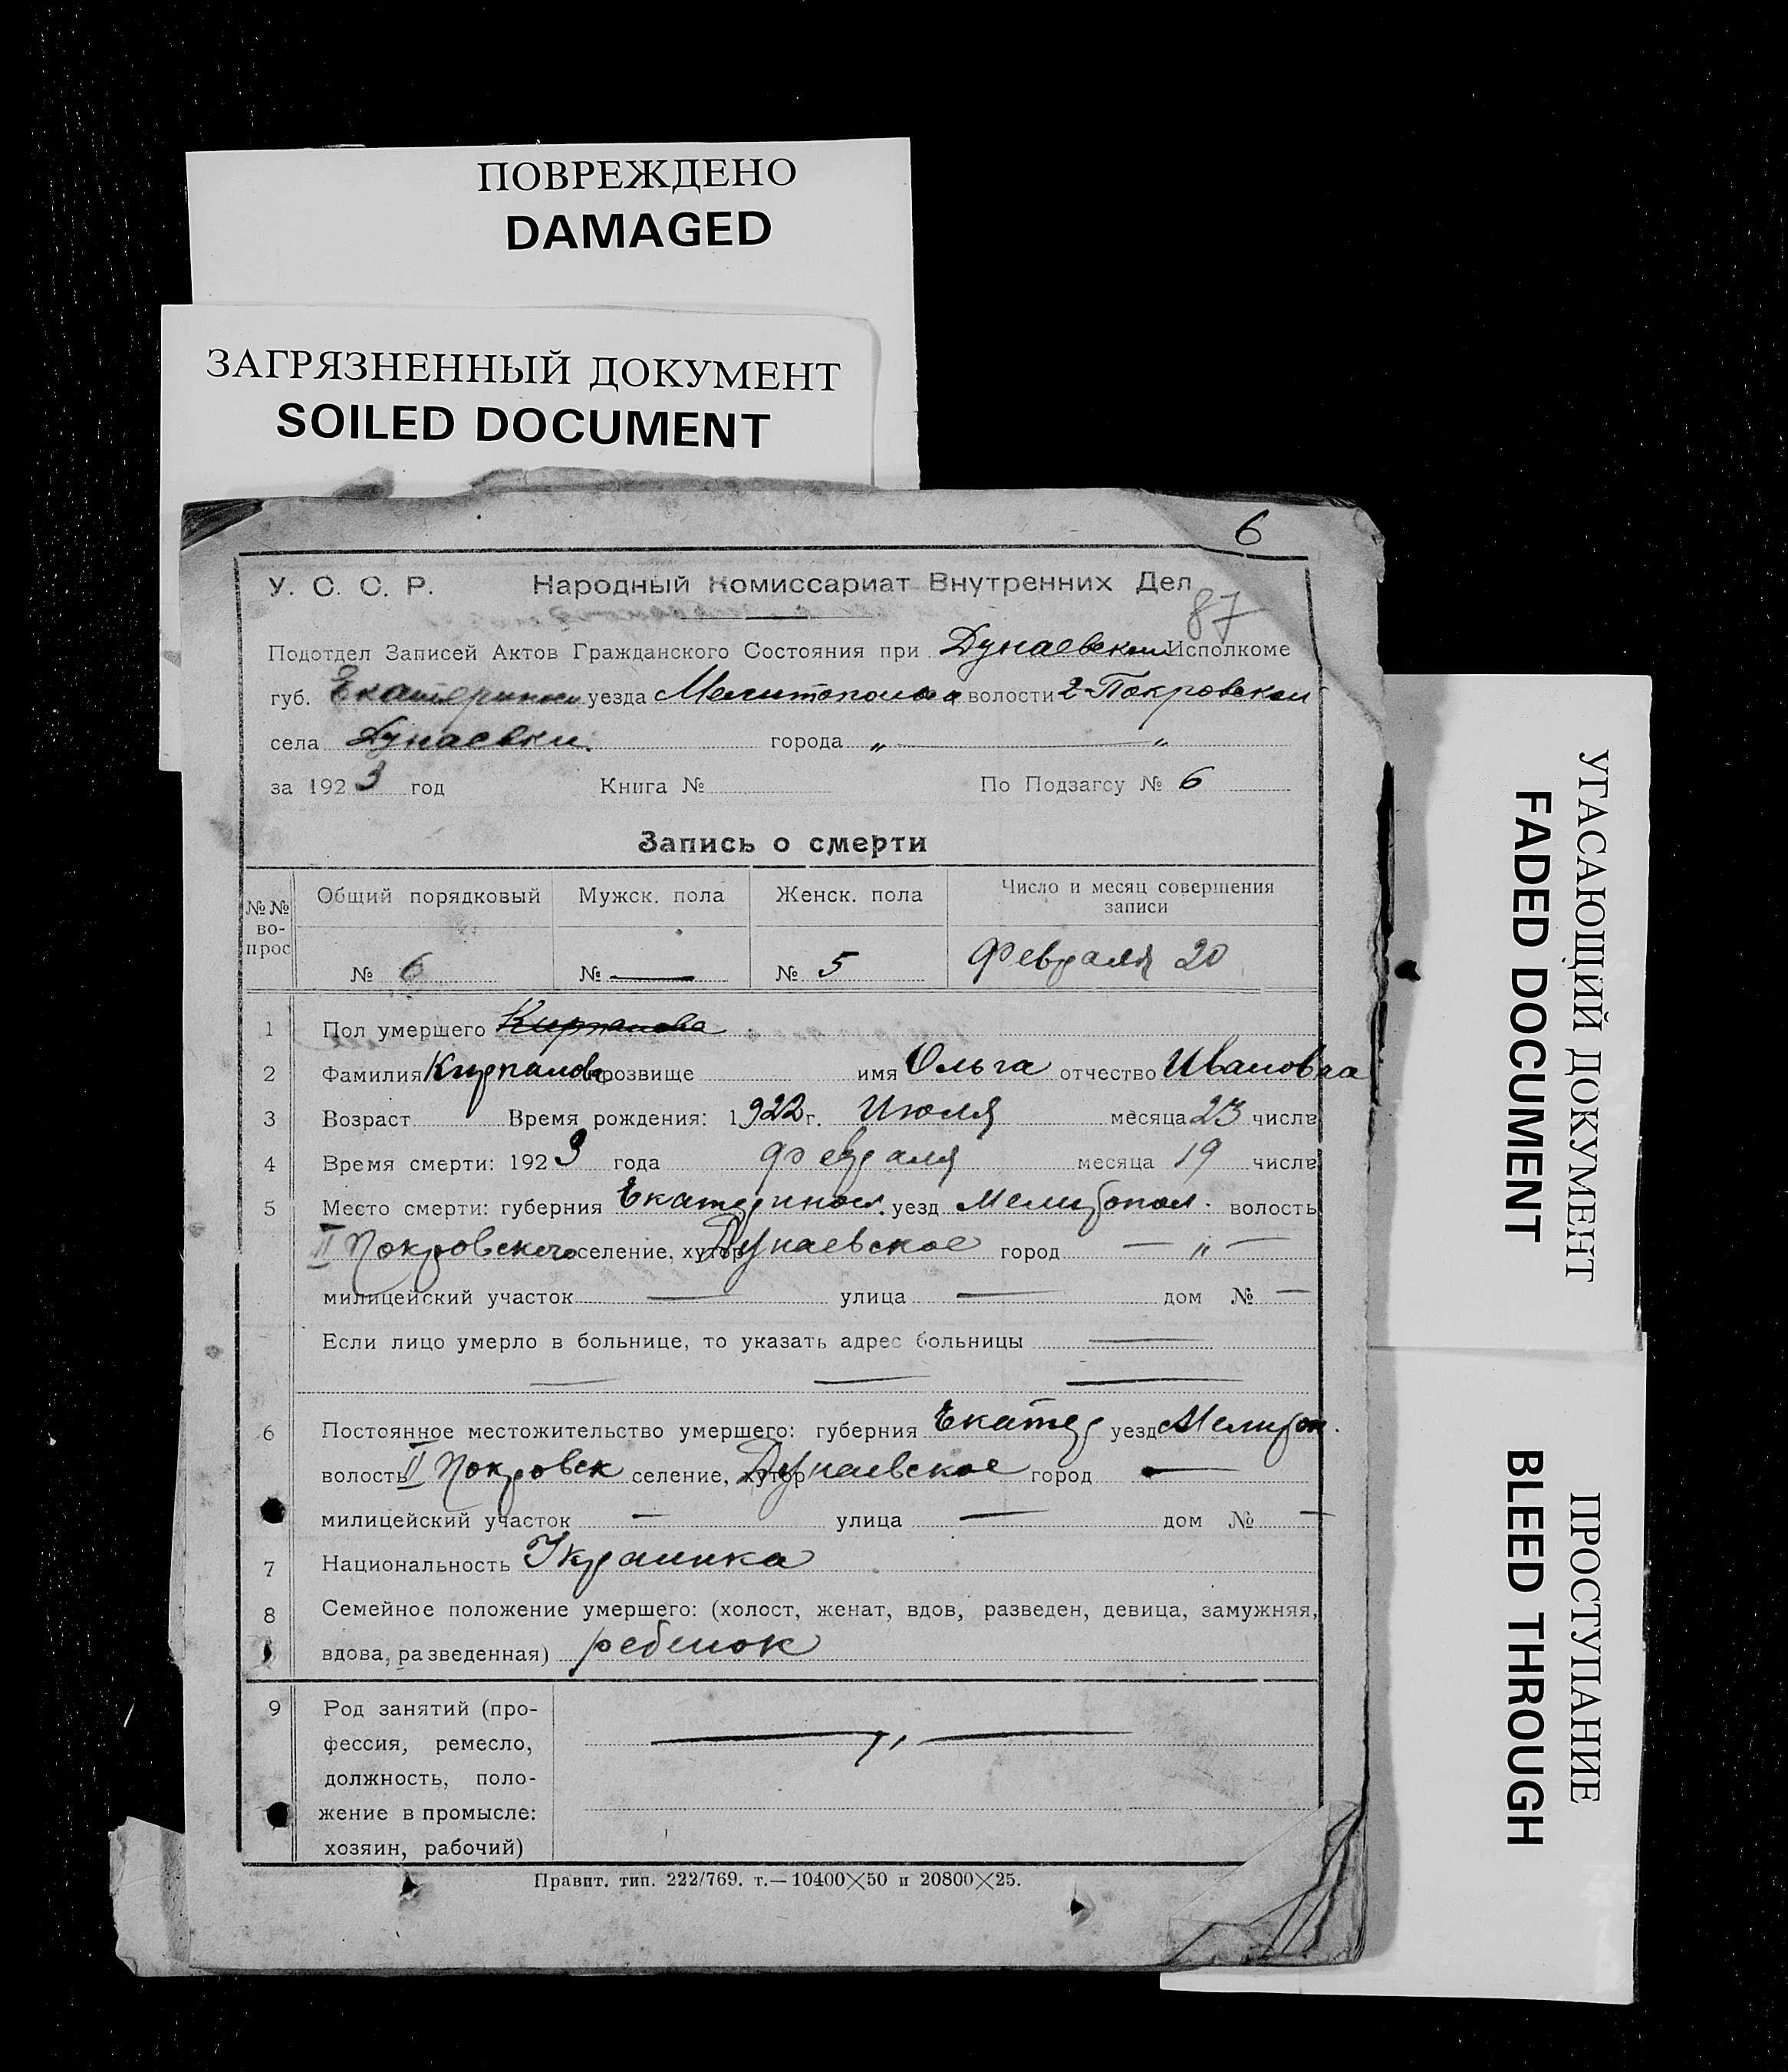 ПОВРЕЖДЕНО
DAMAGED
ЗАГРЯЗНЕННЫЙ ДОКУМЕНТ
SOILED DOCUMENT
6
У. С. С. Р. Народный Комиссариат Внутренних Дел
87
Подотдел Записей Актов Гражданского Состояния при Дунаевском Исполкоме
губ. Екатеринос уезда Мелитопольск волости 2-Покровской
села Дунаевки. города „ — „
за 1923 год Книга № По Подзагсу № 6
Запись о смерти
№№ во-прос Общий порядковый Мужск. пола Женск. пола Число и месяц совершения записи
№ 6 № — № 5 Февраля 20
1 Пол умершего Кирпанова
2 Фамилия Кирпанова прозвище имя Ольга отчество Ивановна
3 Возраст Время рождения: 1922 г. Июля месяца 23 числа
4 Время смерти: 1923 года Февраля месяца 19 числа
5 Место смерти: губерния Екатеринос. уезд Мелитопол. волость
II Покровского селение, хутор Дунаевское город — „ —
милицейский участок — улица — дом № —
Если лицо умерло в больнице, то указать адрес больницы —
— — —
6 Постоянное местожительство умершего: губерния Екатер уезд Мелитоп.
волость II Покровск селение, хутор Дунаевское город —
милицейский участок — улица — дом № —
7 Национальность Украинка
8 Семейное положение умершего: (холост, женат, вдов, разведен, девица, замужняя,
вдова, разведенная) ребенок
9 Род занятий (про-
фессия, ремесло, — „ —
должность, поло-
жение в промысле:
хозяин, рабочий)
Правит. тип. 222/769. т.—10400×50 и 20800×25.
УГАСАЮЩИЙ ДОКУМЕНТ
FADED DOCUMENT
ПРОСТУПАНИЕ
BLEED THROUGH